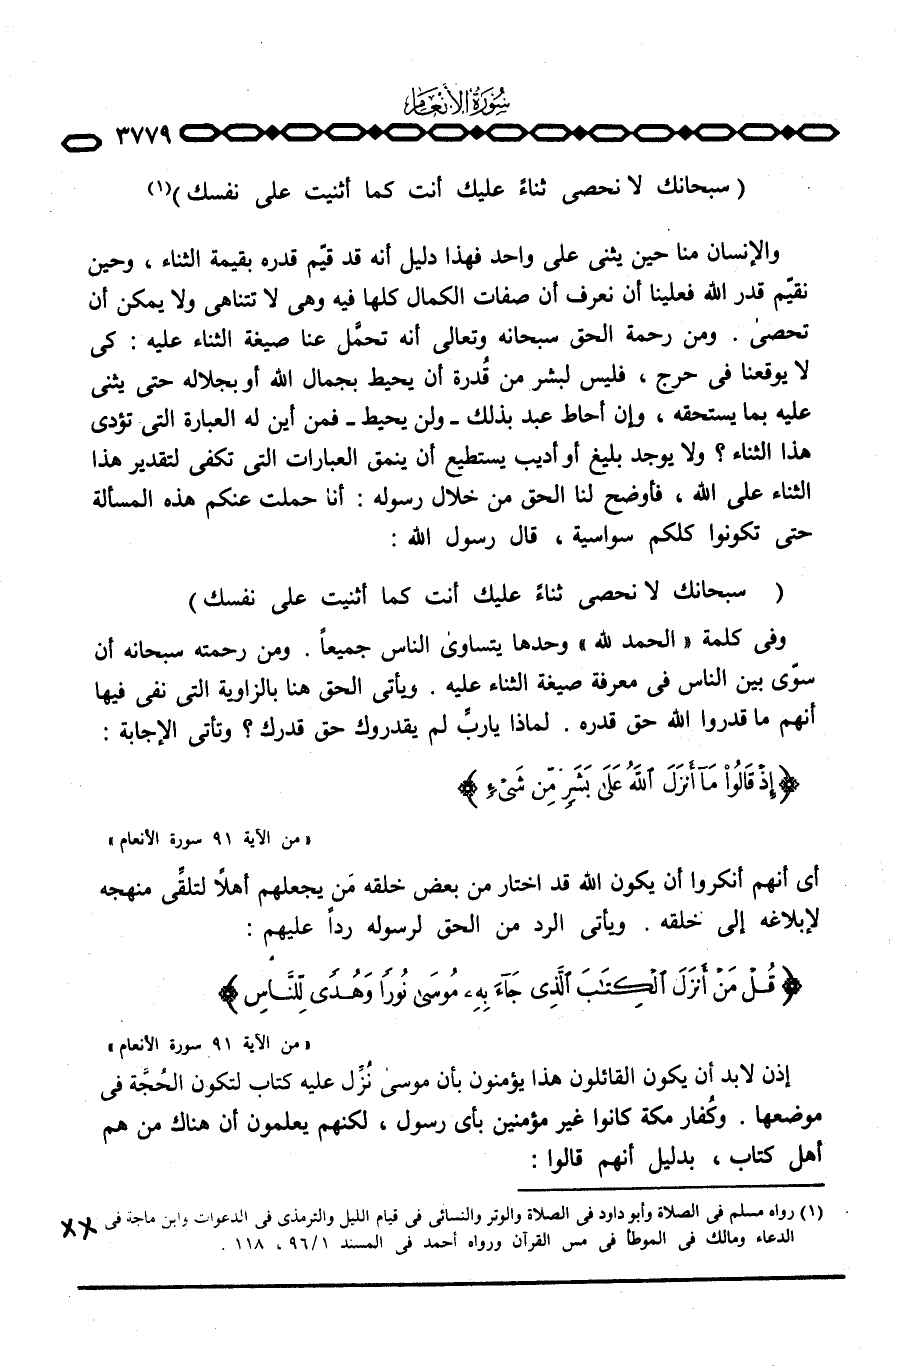 سُورَةُ الأَنْعَام
٣٧٧٩
( سبحانك لا نحصى ثناءً عليك أنت كما أثنيت على نفسك )(١)
والإنسان منا حين يثنى على واحد فهذا دليل أنه قد قيّم قدره بقيمة الثناء ، وحين
نقيّم قدر الله فعلينا أن نعرف أن صفات الكمال كلها فيه وهى لا تتناهى ولا يمكن أن
تحصىٰ . ومن رحمة الحق سبحانه وتعالى أنه تحمَّل عنا صيغة الثناء عليه : كى
لا يوقعنا فى حرج ، فليس لبشر من قُدرة أن يحيط بجمال الله أو بجلاله حتى يثنى
عليه بما يستحقه ، وإن أحاط عبد بذلك ـ ولن يحيط ـ فمن أين له العبارة التى تؤدى
هذا الثناء ؟ ولا يوجد بليغ أو أديب يستطيع أن ينمق العبارات التى تكفى لتقدير هذا
الثناء على الله ، فأوضح لنا الحق من خلال رسوله : أنا حملت عنكم هذه المسألة
حتى تكونوا كلكم سواسية ، قال رسول الله :
( سبحانك لا نحصى ثناءً عليك أنت كما أثنيت على نفسك )
وفى كلمة « الحمد لله » وحدها يتساوىٰ الناس جميعاً . ومن رحمته سبحانه أن
سوّى بين الناس فى معرفة صيغة الثناء عليه . ويأتى الحق هنا بالزاوية التى نفى فيها
أنهم ما قدروا الله حق قدره . لماذا ياربِّ لم يقدروك حق قدرك ؟ وتأتى الإجابة :
﴿ إِذْ قَالُوا۟ مَآ أَنزَلَ ٱللَّهُ عَلَىٰ بَشَرٍ مِّن شَىْءٍ ﴾
« من الآية ٩١ سورة الأنعام »
أى أنهم أنكروا أن يكون الله قد اختار من بعض خلقه مَن يجعلهم أهلًا لتلقِّى منهجه
لإبلاغه إلى خلقه . ويأتى الرد من الحق لرسوله رداً عليهم :
﴿ قُلْ مَنْ أَنزَلَ ٱلْكِتَـٰبَ ٱلَّذِى جَآءَ بِهِۦ مُوسَىٰ نُورًا وَهُدًى لِّلنَّاسِ ﴾
« من الآية ٩١ سورة الأنعام »
إذن لابد أن يكون القائلون هذا يؤمنون بأن موسىٰ نُزِّل عليه كتاب لتكون الحُجَّة فى
موضعها . وكُفار مكة كانوا غير مؤمنين بأى رسول ، لكنهم يعلمون أن هناك من هم
أهل كتاب ، بدليل أنهم قالوا :
(١) رواه مسلم فى الصلاة وأبو داود فى الصلاة والوتر والنسائى فى قيام الليل والترمذى فى الدعوات وابن ماجة فى
الدعاء ومالك فى الموطأ فى مس القرآن ورواه أحمد فى المسند ٩٦/١ ، ١١٨ .